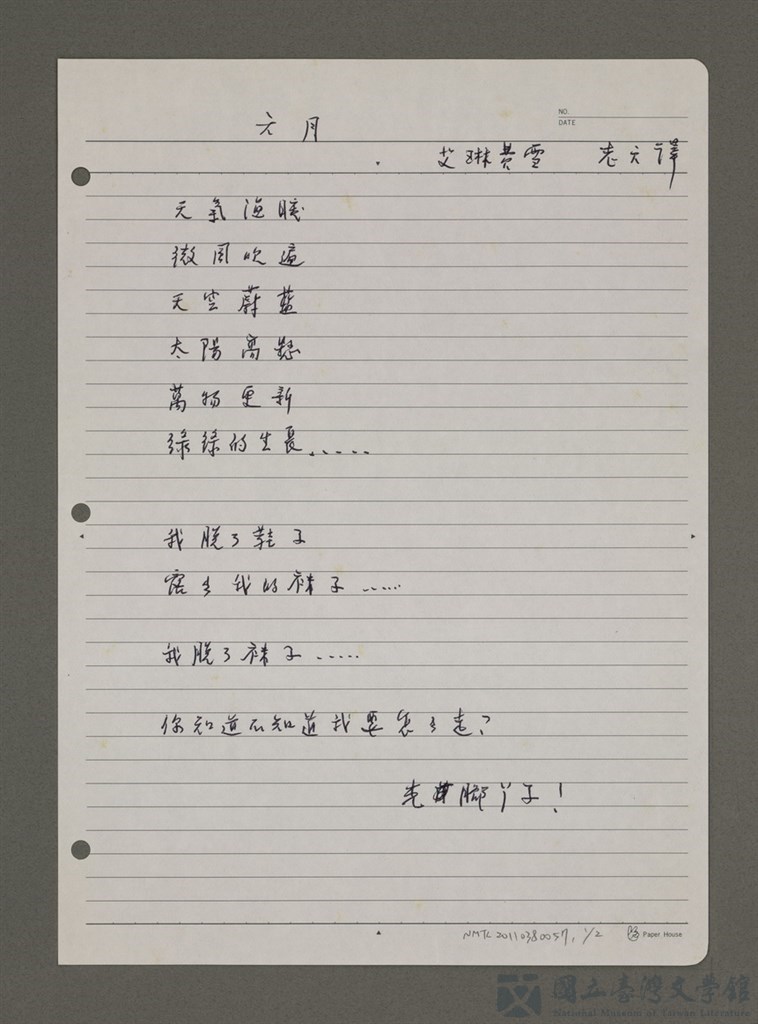 六月
NO.
DATE
艾琳費雪 譯
天氣溫暖
微風吹過
天空蔚藍
太陽高懸
萬物更新
綠綠的生長......
我脫了鞋子
露出我的襪子......
我脫了襪子......
你知道不知道我要怎么走?
光着腳丫子!
NMTL20110380057, 1/2
Paper House
國立臺灣文學館
National Museum of Taiwan Literature